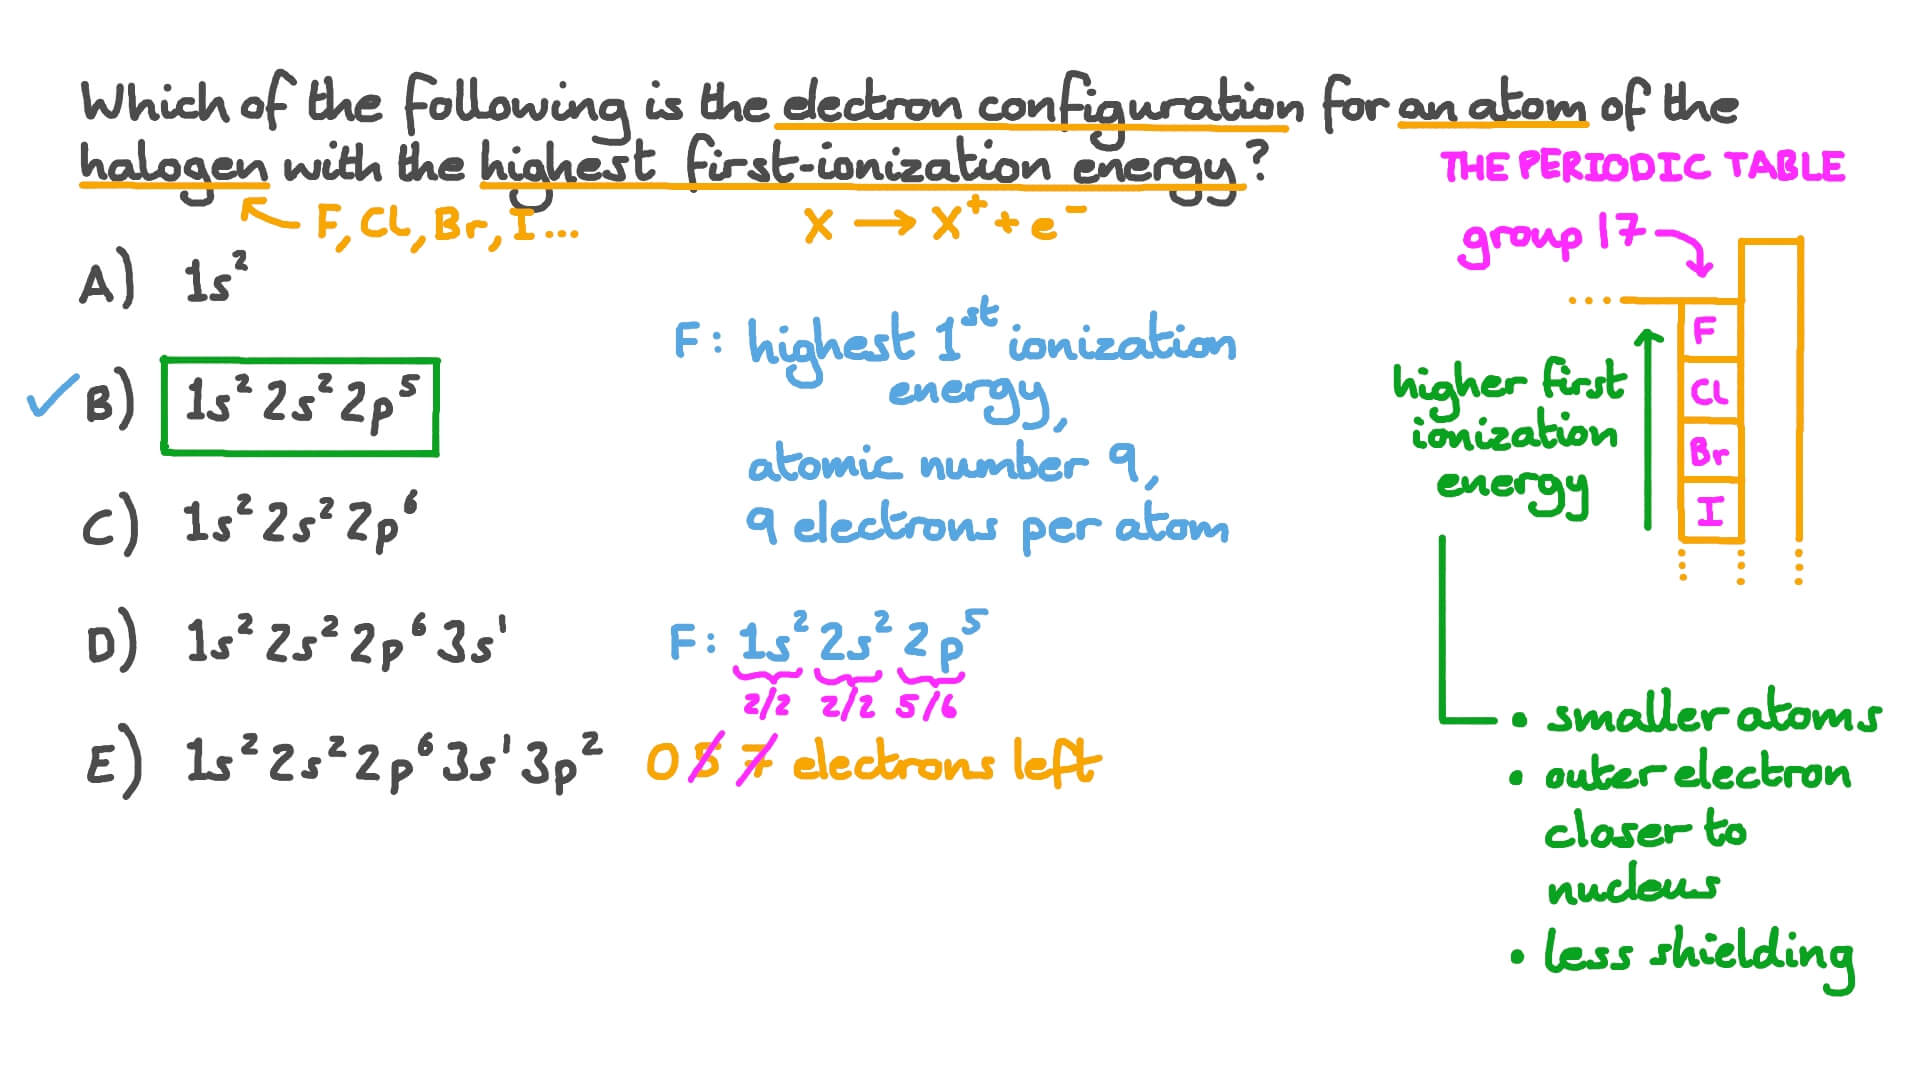 Which of the following is the electron configuration for an atom of the
halogen with the highest first-ionization energy?
F, Cl, Br, I...
X → X⁺ + e⁻
THE PERIODIC TABLE
group 17
A) 1s²
B) 1s² 2s² 2p⁵
C) 1s² 2s² 2p⁶
D) 1s² 2s² 2p⁶ 3s¹
E) 1s² 2s² 2p⁶ 3s¹ 3p²
F: highest 1st ionization
energy,
atomic number 9,
9 electrons per atom
F: 1s² 2s² 2p⁵
2/2 2/2 5/6
0 5 7 electrons left
F
Cl
Br
I
higher first
ionization
energy
• smaller atoms
• outer electron
closer to
nucleus
• less shielding